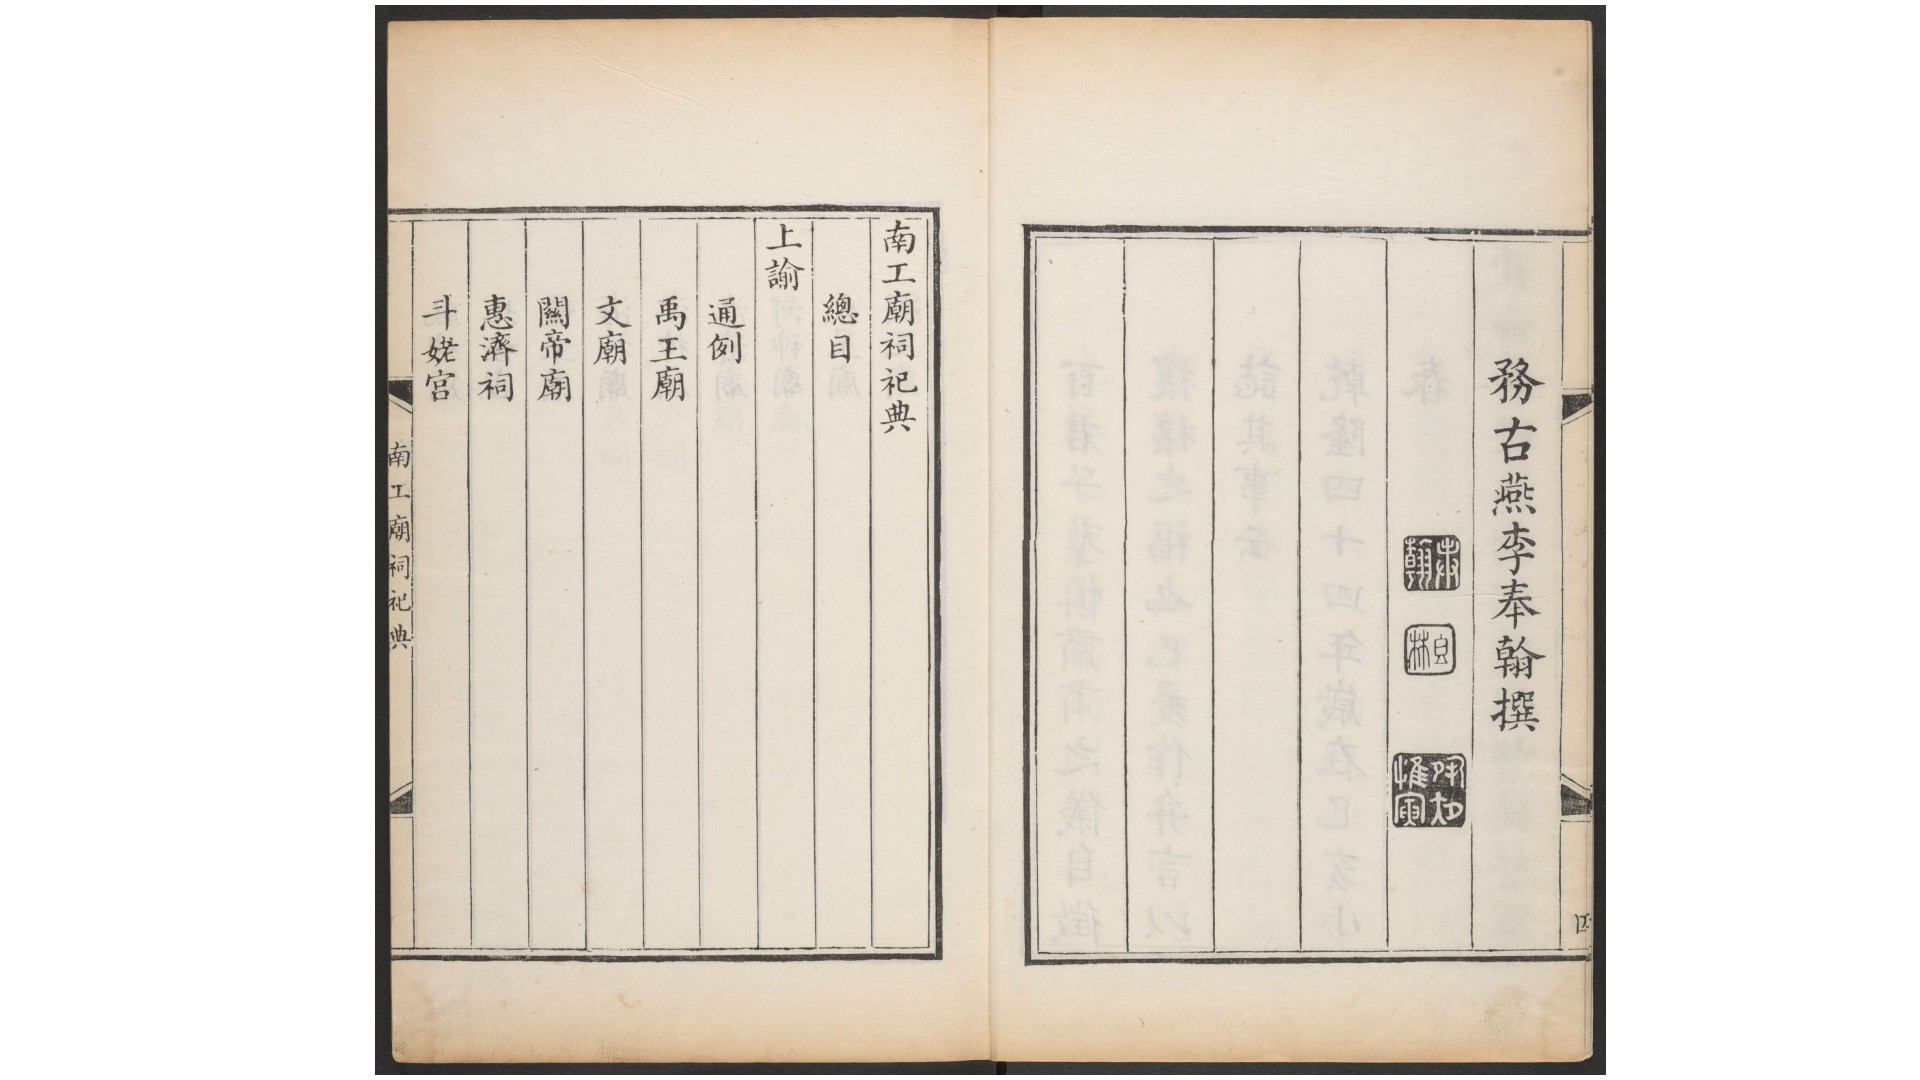 務古燕李奉翰撰
奉翰
南工廟祠祀典
總目
上諭
通例
禹王廟
文廟
關帝廟
惠濟祠
斗姥宮
南工廟祠祀典